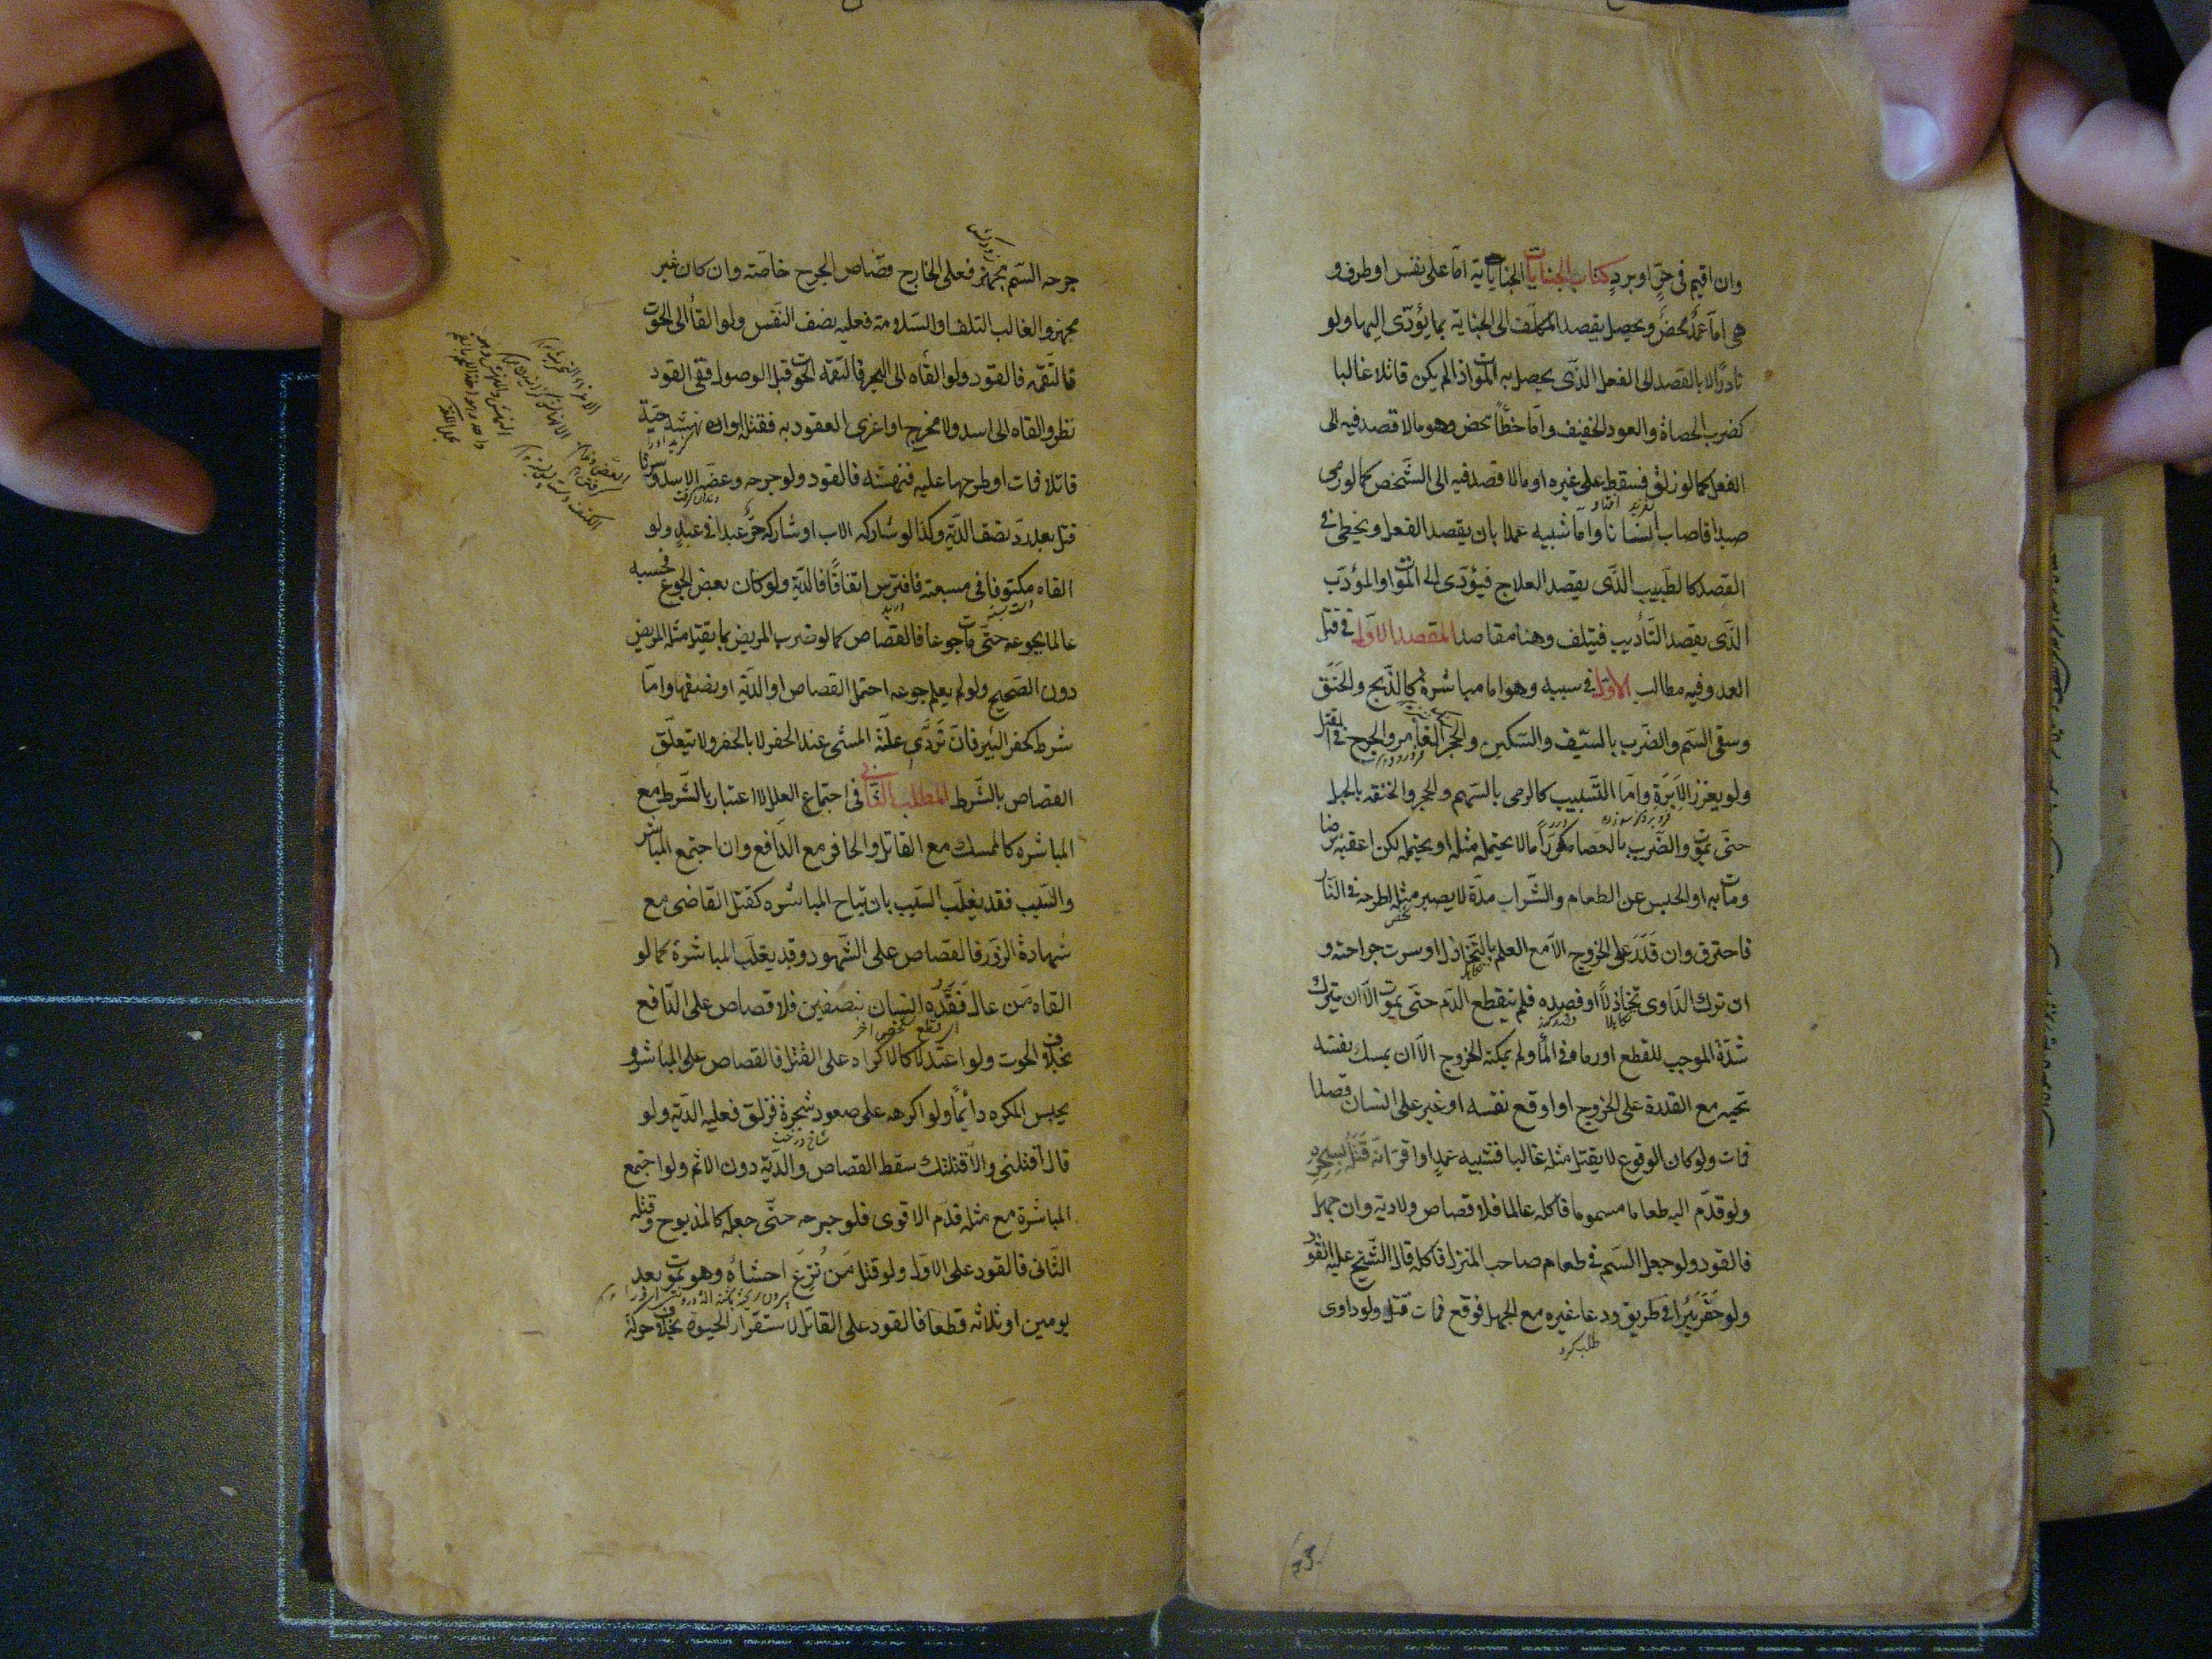 وان اقيم فى حرّ او برد كتاب الجنايات الجناية امّا على نفس او طرف و
هى امّا عمدٌ محضٌ ويحصل بقصد المكلّف الى الجناية بما يؤدّى اليها ولو
نادرًا او بالقصد الى الفعل الذّى يحصل به الموت اذا لم يكن قاتلا غالبا
كضرب الحصاة والعود الخفيف وامّا خطأ محض وهو ما لا قصد فيه الى
الفعل كما لو زلق فسقط على غيره او ما لا قصد فيه الى الشّخص كما لو رمى
صيدا فاصاب انسانا وامّا شبيه عمد بان يقصد الفعل ويخطى فى
القصد كالطّبيب الذّى يقصد العلاج فيؤدّى الى الموت او المؤدّب
الّذى يقصد التّأديب فيتلف وهنا مقاصد المقصد الاوّل فى قتل
العمد وفيه مطالب الاوّل فى سببه وهو اما مباشرة كالذّبح والخنق
وسقى السّم والضّرب بالسّيف والسّكين والحجر الغامز والجرح فى المقتل
ولو بغرز الابرة وامّا التّسبيب كالرمى بالسّهم والحجر والخنقه بالحبل
حتّى يموت والضّرب بالعصا مكررًا ما لا يحتمل مثله او يحتمله لكن اعقبه مرضا
ومات به او الحبس عن الطعام والشّراب مدّة لا يصبر مثله او طرحه فى النّار
فاحترق وان قدر على الخروج الاّ مع العلم بالتّخاذل او سرت جراحته و
ان ترك الدّاوى تخاذلاً او فصده فلم ينقطع الدّم حتّى يموت الاّ ان يترك
شدّة الموجب للقطع او رماه فى الماء ولم يمكنه الخروج الاّ ان يمسك نفسه
تحته مع القدرة على الخروج او اوقع نفسه او غيره على انسان قصدا
فمات ولو كان الوقوع لا يقتل مثله غالبا فشبيه عمد او اقرّ انّه قتله بسحره
ولو قدّم اليه طعاما مسموما فاكله عالما فلا قصاص ولا دية وان جهل
فالقود ولو جعل السّم فى طعام صاحب المنزل فاكله قال الشّيخ عليه القود
ولو حفر بئرا فى طريق ودعا غيره مع الجهل فوقع فمات قتل ولو داوى
طلب كرد
جرحه السّم بمجهز فعلى الجارح قصاص الجرح خاصّة وان كان غير
مجهز والغالب التلف او السّلامة فعليه نصف النّفس ولو القاه الى الحوت
فالتقمه فالقود ولو القاه الى البحر فالتقمه الحوت قبل الوصول ففى القود
نظر والقاه الى اسد ولا مخرج او اغرى العقور به فقتله او انهشه حيّة
قاتلا فمات او طرحها عليه فنهشته فالقود ولو جرحه وعضّه الاسد وسرتا
قتل بعد ردّ نصف الدّية وكذا لو شاركه الاب او شارك حرٌّ عبدا فى عبدٍ ولو
القاه مكتوفا فى مسبعة فافترس اتفاقًا فالدّية ولو كان بعض الجوع فحبسه
عالما بجوعه حتّى مات جوعا فالقصاص كما لو ضرب المريض بما يقتل مثله المريض
دون الصّحيح ولو لم يعلم جوعه احتمل القصاص او الدّية او نصفها وامّا
شرط كحفر البئر فانّ تردّى علّته المشى عند الحفر لا بالحفر ولا يتعلّق
القصاص بالشّرط المطلب الثّانى فى اجتماع العلل لا اعتبار بالشّرط مع
المباشره كالممسك مع القاتل والحافر مع الدّافع وان اجتمع المباشر
والسّبب فقد يغلّب السّبب بان يباح المباشره كقتل القاضى مع
شهادة الزّور فالقصاص على الشّهود وقد يغلّب المباشرة كما لو
القاه من عال فقدّه انسان بنصفين فلا قصاص على الدّافع
بخلاف الحوت ولو اعتدلا كالاكراه على القتل فالقصاص على المباشر و
يحبس المكره دائمًا ولو اكرهه على صعود شجرة فزلق فعليه الدّية ولو
قال اقتلنى والاّ قتلتك سقط القصاص والدّية دون الاثم ولو اجتمع
المباشرة مع مثله قدّم الاقوى فلو جرحه حتّى جعله كالمذبوح وقتله
الثّانى فالقود على الاوّل ولو قتل من نزع احشاؤه وهو يموت بعد
يومين او ثلاثه قطعا فالقود على القاتل لاستقرار الحيوة بخلاف حركة